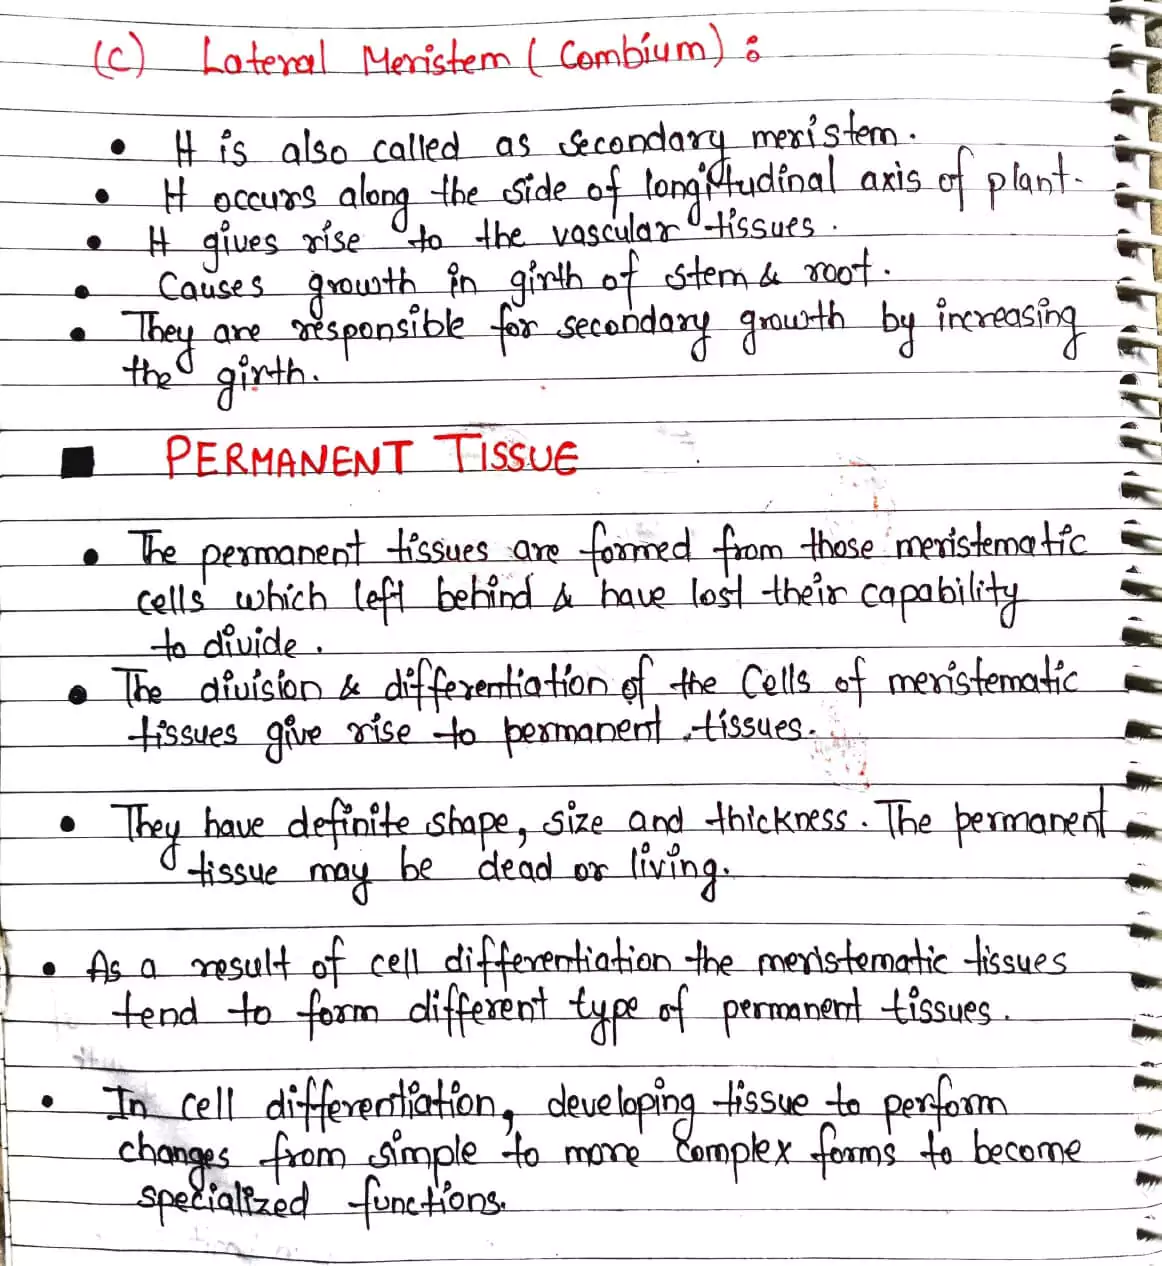 (C) Lateral Meristem ( Combium) :
• It is also called as secondary meristem.
• It occurs along the side of longitudinal axis of plant.
• It gives rise to the vascular tissues.
• Causes growth in girth of stem & root.
• They are responsible for secondary growth by increasing
the girth.
■ PERMANENT TISSUE
• The permanent tissues are formed from those meristematic
cells which left behind & have lost their capability
to divide.
• The division & differentiation of the Cells of meristematic
tissues give rise to permanent tissues.
• They have definite shape, size and thickness. The permanent
tissue may be dead or living.
• As a result of cell differentiation the meristematic tissues
tend to form different type of permanent tissues.
• In cell differentiation, developing tissue to perform
changes from simple to more complex forms to become
specialized functions.